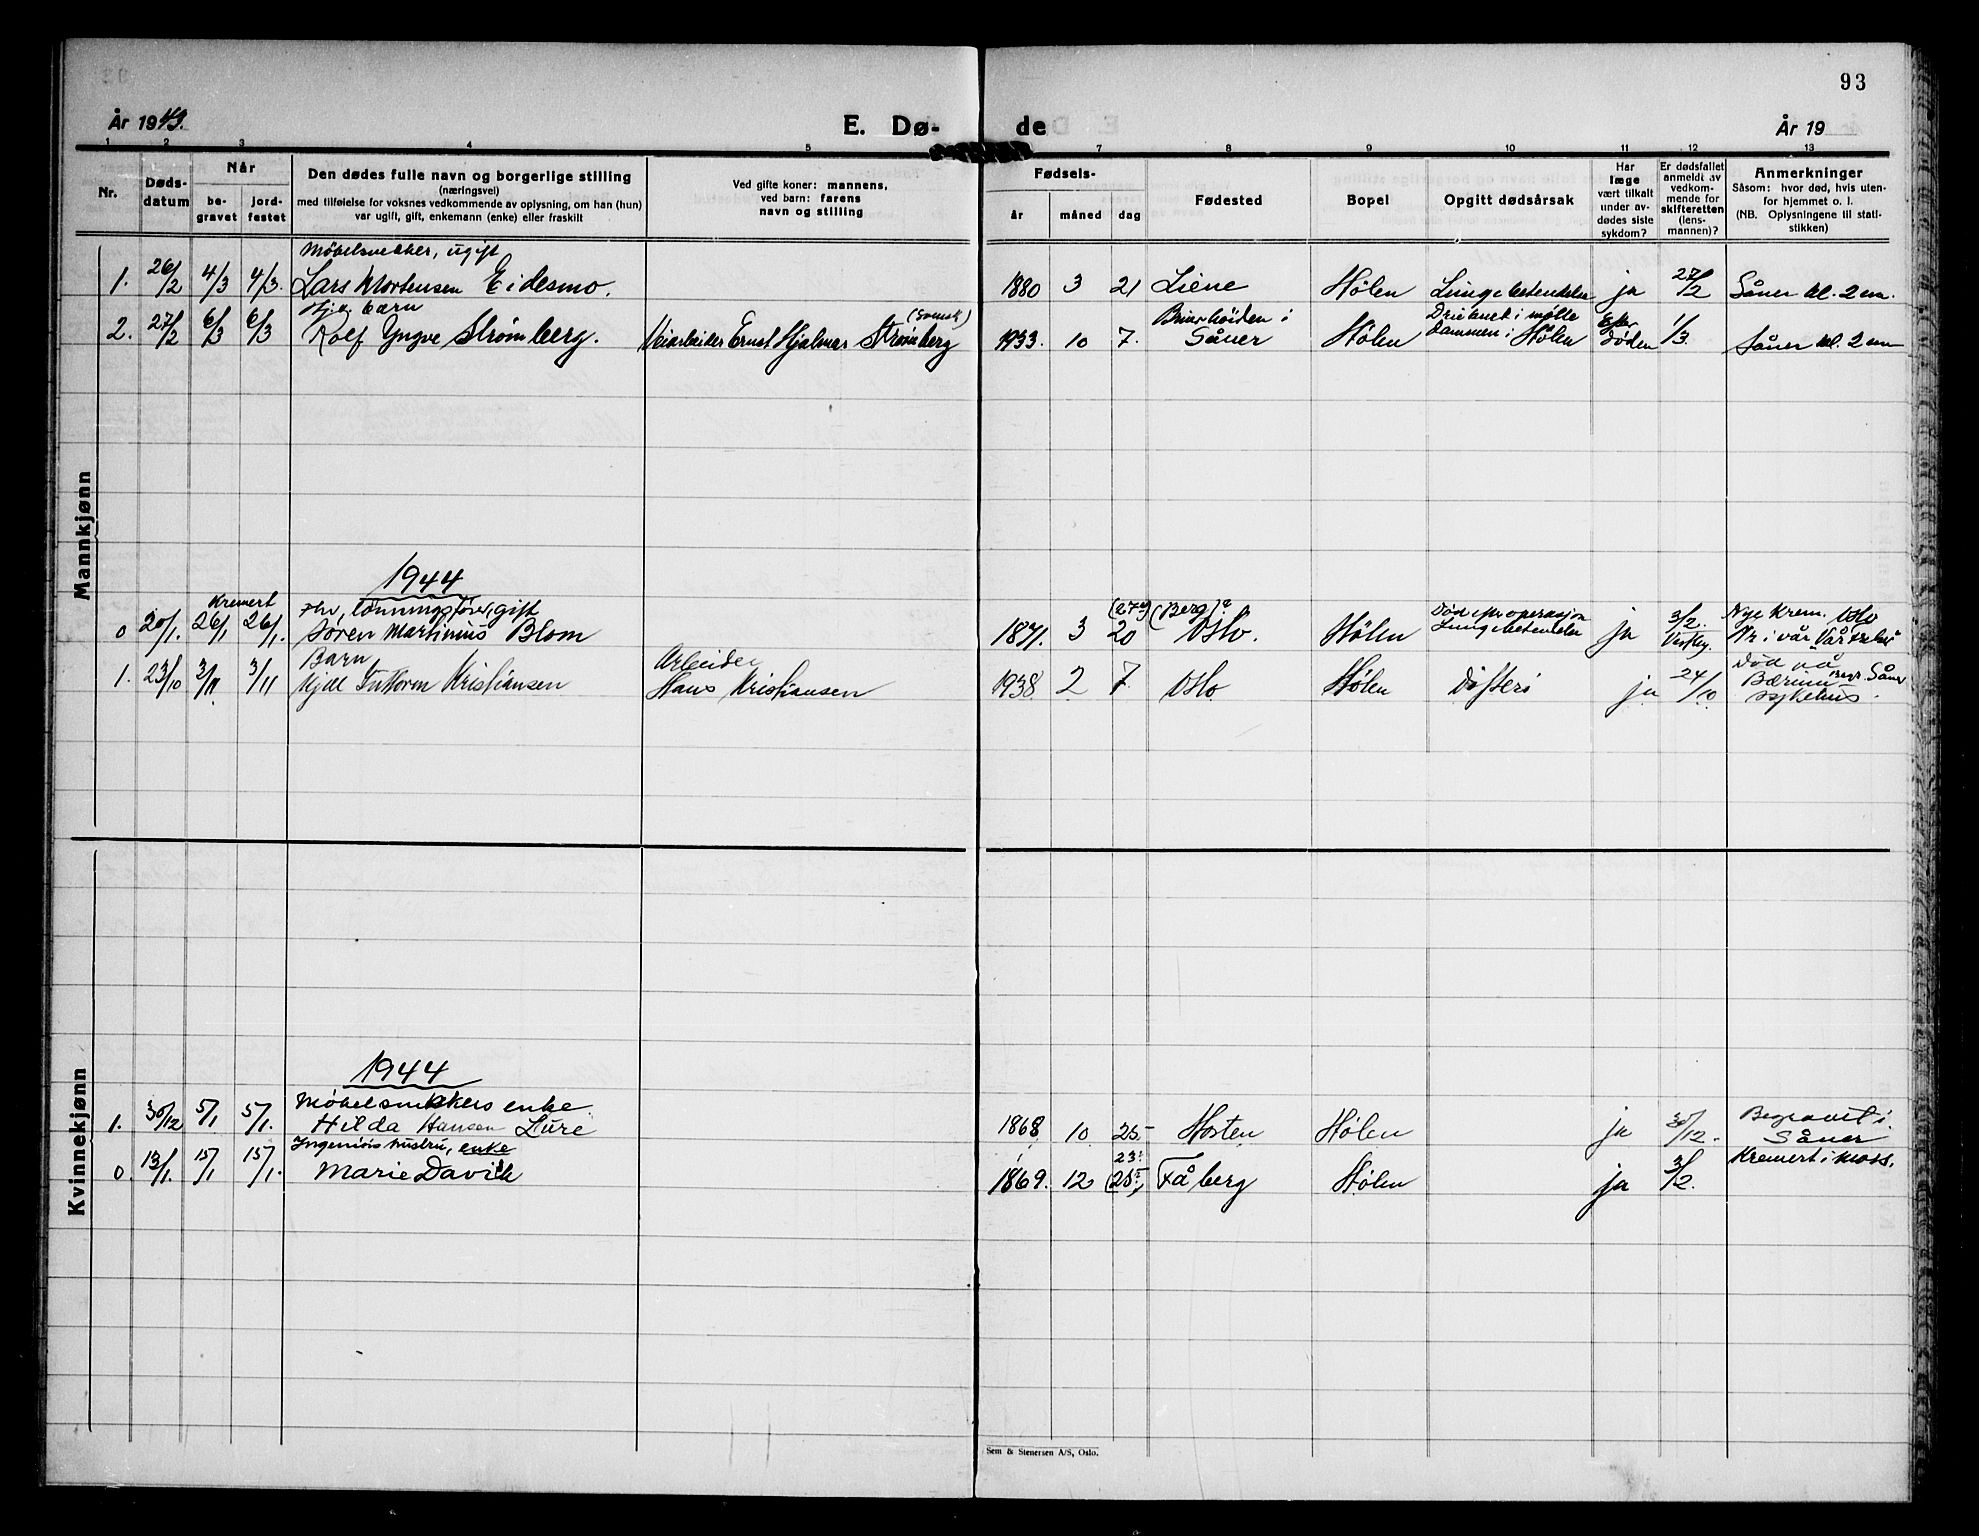 93
År 1943.
E. Dø-
de
År 19
1 2 3 4 5 7 8 9 10 11 12 13
Nr.
Døds-
datum
Når
be-
gravet
jord-
festet
Den dødes fulle navn og borgerlige stilling
(næringsvei)
med tilføielse for voksnes vedkommende av oplysning, om han (hun)
var ugift, gift, enkemann (enke) eller fraskilt
Ved gifte koner: mannens,
ved barn: farens
navn og stilling
Fødsels-
år måned dag
Fødested
Bopel
Opgitt dødsårsak
Har
læge
vært tilkalt
under av-
dødes siste
sykdom?
Er dødsfallet
anmeldt av
vedkom-
mende for
skifteretten
(lens-
mannen)?
Anmerkninger
Såsom: hvor død, hvis uten-
for hjemmet o. l.
(NB. Oplysningene til stati-
stikken)
Mannkjønn
Møbelsnekker, ugift
1. 26/2 4/3 4/3. Lars Mortensen Eidesmo. 1880 3 21 Liene Hølen Lungebetendelse ja 27/2 Såner kl. 2 em.
barn (svensk) i Druknet i mølle
2. 27/2 6/3 6/3 Rolf Yngve Strømberg. Veiarbeider Ernst Hjalmar Strømberg 1933. 10 7. Såner Hølen dammen i Hølen Efter døden 1/3. Såner kl. 2 em
1944
Kremert gift (Berg)? Død efter operasjon 3/2. Nye Krem. Oslo
0 20/1. 26/1 26/1. Søren Martinius Blom 1871. 3 20 Oslo. Hølen Lungebetendelse ja Nr. i vår
Barn Arbeider Død på
1. 23/10 3/11 3/11 Kjell Guttorm Kristiansen Hans Kristiansen 1938 2 7. Oslo Hølen Difteri ja 24/10 Bærum Begr. Såner
sykehus.
Kvinnekjønn
1944
Møbelsnekkers enke. Begravet i
1. 30/12 5/1 5/1. Hilda Hansen Lure 1868 10 25. Hosten Hølen ja 30/12. Såner
Ingeniørs hustru, enke 23. Kremert i Moss.
0. 13/1. 15/1 15/1. Marie Davik 1869. 12 (25.) Fåberg Hølen ja 3/2.
Sem & Stenersen A/S, Oslo.